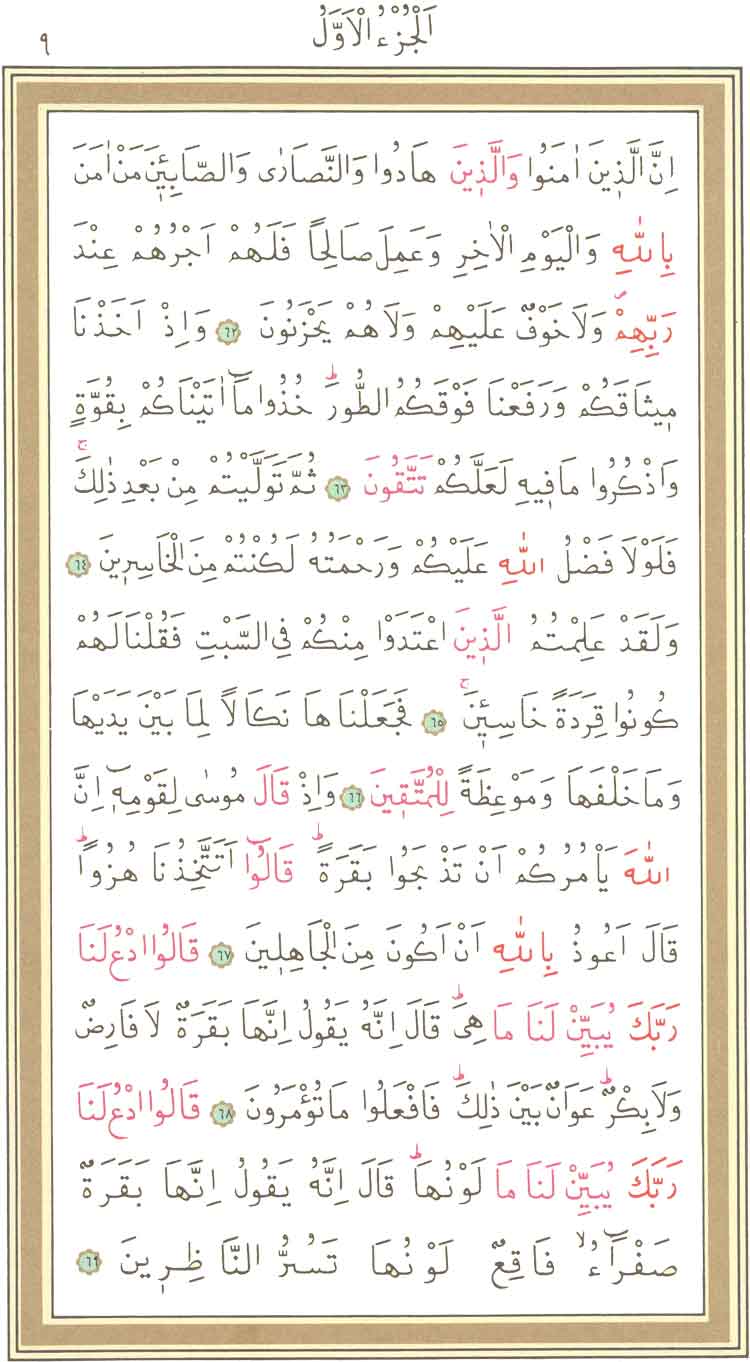 اَلْجُزْءُ الْاَوَّلُ ٩
اِنَّ الَّذ۪ينَ اٰمَنُوا وَالَّذ۪ينَ هَادُوا وَالنَّصَارٰى وَالصَّابِـ۪ٔينَ مَنْ اٰمَنَ
بِاللّٰهِ وَالْيَوْمِ الْاٰخِرِ وَعَمِلَ صَالِحًا فَلَهُمْ اَجْرُهُمْ عِنْدَ
رَبِّهِمْۖ وَلَا خَوْفٌ عَلَيْهِمْ وَلَا هُمْ يَحْزَنُونَ ﴿٦٢﴾ وَاِذْ اَخَذْنَا
م۪يثَاقَكُمْ وَرَفَعْنَا فَوْقَكُمُ الطُّورَۜ خُذُوا مَٓا اٰتَيْنَاكُمْ بِقُوَّةٍ
وَاذْكُرُوا مَا ف۪يهِ لَعَلَّكُمْ تَتَّقُونَ ﴿٦٣﴾ ثُمَّ تَوَلَّيْتُمْ مِنْ بَعْدِ ذٰلِكَۚ
فَلَوْلَا فَضْلُ اللّٰهِ عَلَيْكُمْ وَرَحْمَتُهُ لَكُنْتُمْ مِنَ الْخَاسِر۪ينَ ﴿٦٤﴾
وَلَقَدْ عَلِمْتُمُ الَّذ۪ينَ اعْتَدَوْا مِنْكُمْ فِي السَّبْتِ فَقُلْنَا لَهُمْ
كُونُوا قِرَدَةً خَاسِـ۪ٔينَۚ ﴿٦٥﴾ فَجَعَلْنَاهَا نَكَالًا لِمَا بَيْنَ يَدَيْهَا
وَمَا خَلْفَهَا وَمَوْعِظَةً لِلْمُتَّق۪ينَ ﴿٦٦﴾ وَاِذْ قَالَ مُوسٰى لِقَوْمِه۪ٓ اِنَّ
اللّٰهَ يَأْمُرُكُمْ اَنْ تَذْبَحُوا بَقَرَةًۜ قَالُٓوا اَتَتَّخِذُنَا هُزُوًاۜ
قَالَ اَعُوذُ بِاللّٰهِ اَنْ اَكُونَ مِنَ الْجَاهِل۪ينَ ﴿٦٧﴾ قَالُوا ادْعُ لَنَا
رَبَّكَ يُبَيِّنْ لَنَا مَا هِيَۜ قَالَ اِنَّهُ يَقُولُ اِنَّهَا بَقَرَةٌ لَا فَارِضٌ
وَلَا بِكْرٌۜ عَوَانٌ بَيْنَ ذٰلِكَۜ فَافْعَلُوا مَا تُؤْمَرُونَ ﴿٦٨﴾ قَالُوا ادْعُ لَنَا
رَبَّكَ يُبَيِّنْ لَنَا مَا لَوْنُهَاۜ قَالَ اِنَّهُ يَقُولُ اِنَّهَا بَقَرَةٌ
صَفْرَٓاءُۙ فَاقِعٌ لَوْنُهَا تَسُرُّ النَّاظِر۪ينَ ﴿٦٩﴾